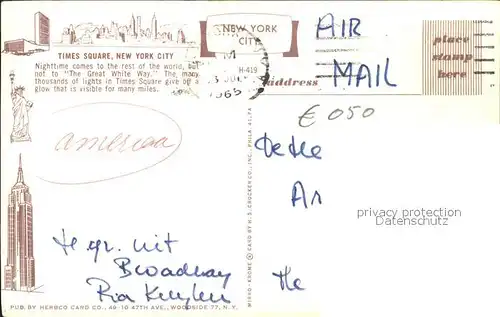 NEW YORK
CITY
AIR
MAIL
place
stamp
here
address
H-419
1965
TIMES SQUARE, NEW YORK CITY
Nighttime comes to the rest of the world, but
not to "The Great White Way." The many
thousands of lights in Times Square give off a
glow that is visible for many miles.
€ 050
america
privacy protection
Oldthing.de
H. gr. uit
Broadway
Ria
MIRRO-KROME © CARD BY H. S. CROCKER CO., INC., PHILA. 41, PA.
PUB. BY HERBCO CARD CO., 49-10 47TH AVE., WOODSIDE 77, N. Y.